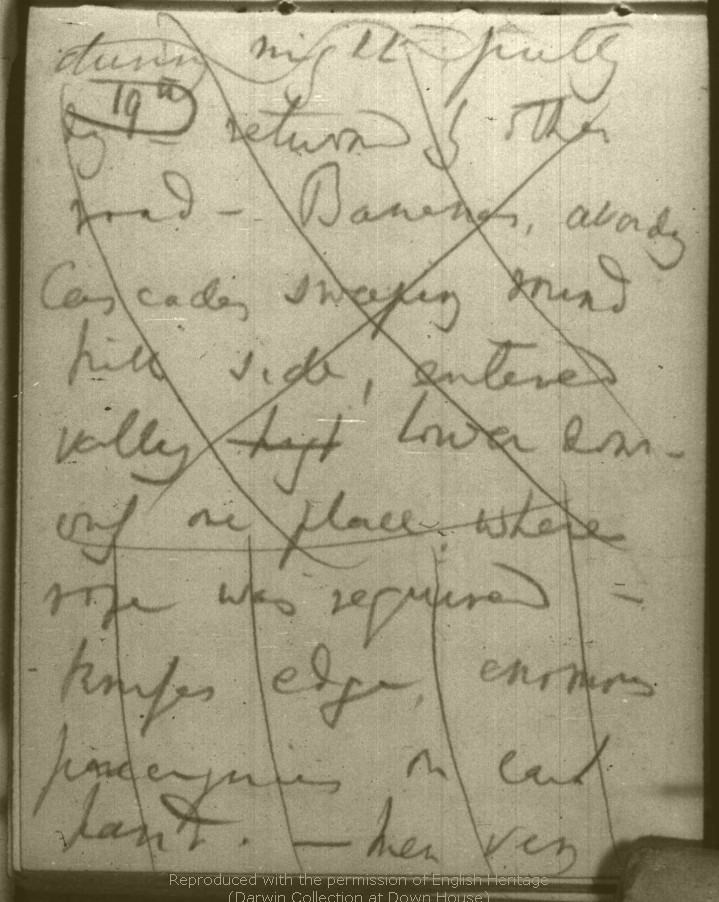 during night pretty
dry 19th — returned by other
road — Bananas, avoidg
Cascades sweeping round
hill side, entered
valley lower down —
only one place, where
rope was required —
knifes edge, enormous
precipices on each
hand. — men very
Reproduced with the permission of English Heritage
(Darwin Collection at Down House)